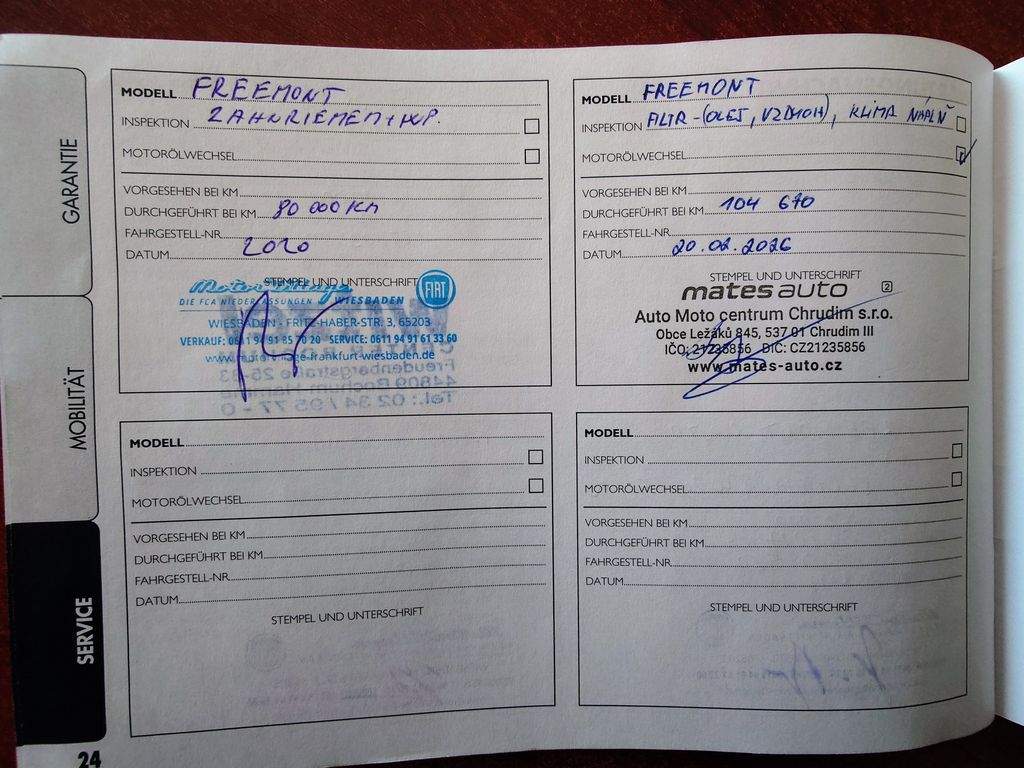 GARANTIE
MOBILITÄT
SERVICE
24
MODELL FREEMONT
INSPEKTION ZAHNRIEMEN + WP.
MOTORÖLWECHSEL
VORGESEHEN BEI KM
DURCHGEFÜHRT BEI KM 80 000 KM
FAHRGESTELL-NR.
DATUM 2020
STEMPEL UND UNTERSCHRIFT
Motor Village
DIE FCA NIEDERLASSUNGEN WIESBADEN
FIAT
WIESBADEN - FRITZ-HABER-STR. 3, 65203
SERVICE: 0611 94 91 61 33 60
www.motorvillage-frankfurt-wiesbaden.de
Freudenbergstraße
44809 Bochum
Tel.: 02 34 / 95 77 - 0
MODELL FREEMONT
INSPEKTION FILTR - (OLEJ, VZDUCH), KLIMA NÁPLŇ
MOTORÖLWECHSEL
VORGESEHEN BEI KM
DURCHGEFÜHRT BEI KM 104 670
FAHRGESTELL-NR.
DATUM 20.02.2026
STEMPEL UND UNTERSCHRIFT
mates auto 2
Auto Moto centrum Chrudim s.r.o.
Obce Ležáků 845, 537 01 Chrudim III
IČO: 21235856 DIČ: CZ21235856
www.mates-auto.cz
MODELL
INSPEKTION
MOTORÖLWECHSEL
VORGESEHEN BEI KM
DURCHGEFÜHRT BEI KM
FAHRGESTELL-NR.
DATUM
STEMPEL UND UNTERSCHRIFT
MODELL
INSPEKTION
MOTORÖLWECHSEL
VORGESEHEN BEI KM
DURCHGEFÜHRT BEI KM
FAHRGESTELL-NR.
DATUM
STEMPEL UND UNTERSCHRIFT